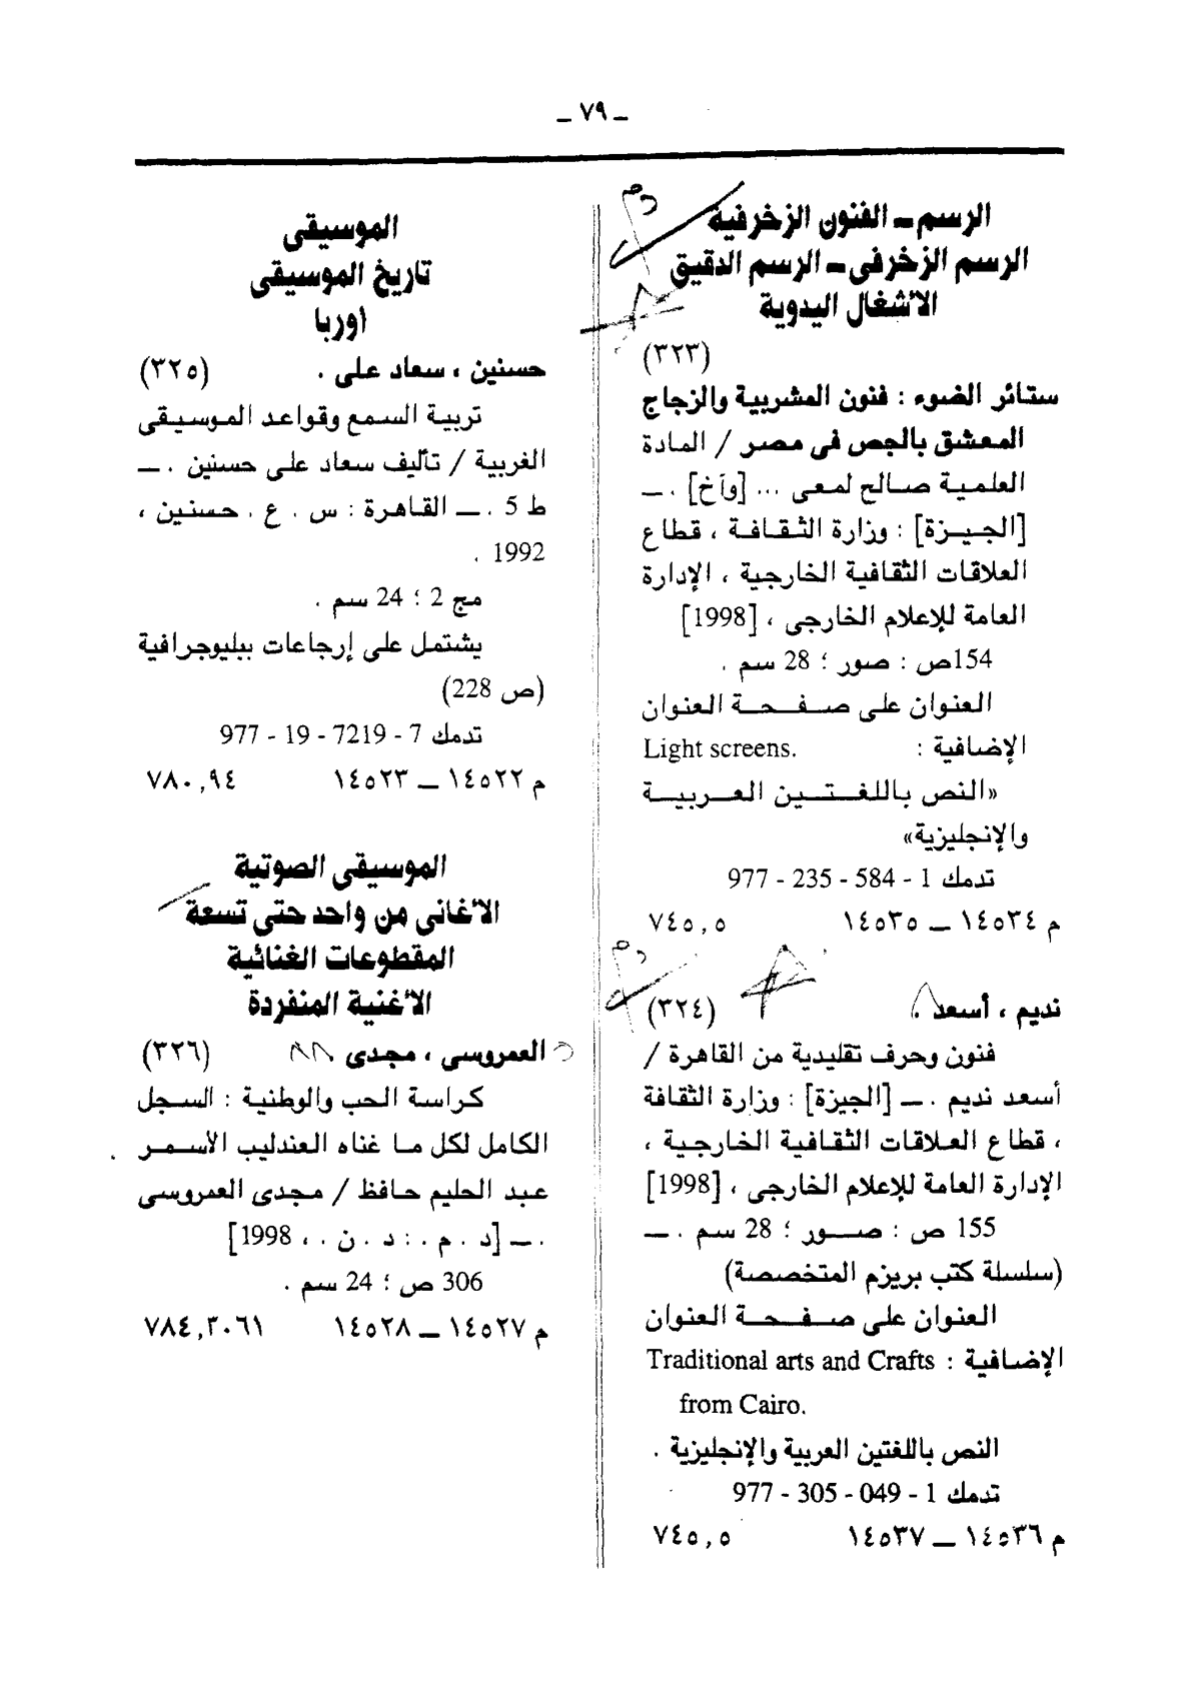 ـ ٧٩ ـ
الرسم ـ الفنون الزخرفية
الرسم الزخرفى ـ الرسم الدقيق
الأشغال اليدوية
(٣٢٣)
ستائر الضوء : فنون المشربية والزجاج
المعشق بالجص فى مصر / المادة
العلمية صالح لمعى ... [وآخ] . ـــ
[الجيزة] : وزارة الثقافة ، قطاع
العلاقات الثقافية الخارجية ، الإدارة
العامة للإعلام الخارجى ، [1998]
154ص : صور ؛ 28 سم .
العنوان على صفحة العنوان
الإضافية : Light screens.
«النص باللغتين العربية
والإنجليزية»
تدمك 1 - 584 - 235 - 977
م ١٤٥٣٤ ـــ ١٤٥٣٥ ٧٤٥,٥
نديم ، أسعد . (٣٢٤)
فنون وحرف تقليدية من القاهرة /
أسعد نديم . ـــ [الجيزة] : وزارة الثقافة
، قطاع العلاقات الثقافية الخارجية ،
الإدارة العامة للإعلام الخارجى ، [1998]
155 ص : صور ؛ 28 سم . ـــ
(سلسلة كتب بريزم المتخصصة)
العنوان على صفحة العنوان
الإضافية : Traditional arts and Crafts
from Cairo.
النص باللغتين العربية والإنجليزية .
تدمك 1 - 049 - 305 - 977
م ١٤٥٣٦ ـــ ١٤٥٣٧ ٧٤٥,٥
الموسيقى
تاريخ الموسيقى
أوربا
حسنين ، سعاد على . (٣٢٥)
تربية السمع وقواعد الموسيقى
الغربية / تأليف سعاد على حسنين . ـــ
ط 5 . ـــ القاهرة : س . ع . حسنين ،
1992 .
مج 2 ؛ 24 سم .
يشتمل على إرجاعات ببليوجرافية
(ص 228)
تدمك 7 - 7219 - 19 - 977
م ١٤٥٢٢ ـــ ١٤٥٢٣ ٧٨٠,٩٤
الموسيقى الصوتية
الأغانى من واحد حتى تسعة
المقطوعات الغنائية
الأغنية المنفردة
العمروسى ، مجدى (٣٢٦)
كراسة الحب والوطنية : السجل
الكامل لكل ما غناه العندليب الأسمر
عبد الحليم حافظ / مجدى العمروسى
. ـــ [د . م . : د . ن . ، 1998]
306 ص ؛ 24 سم .
م ١٤٥٢٧ ـــ ١٤٥٢٨ ٧٨٤,٣٠٦١